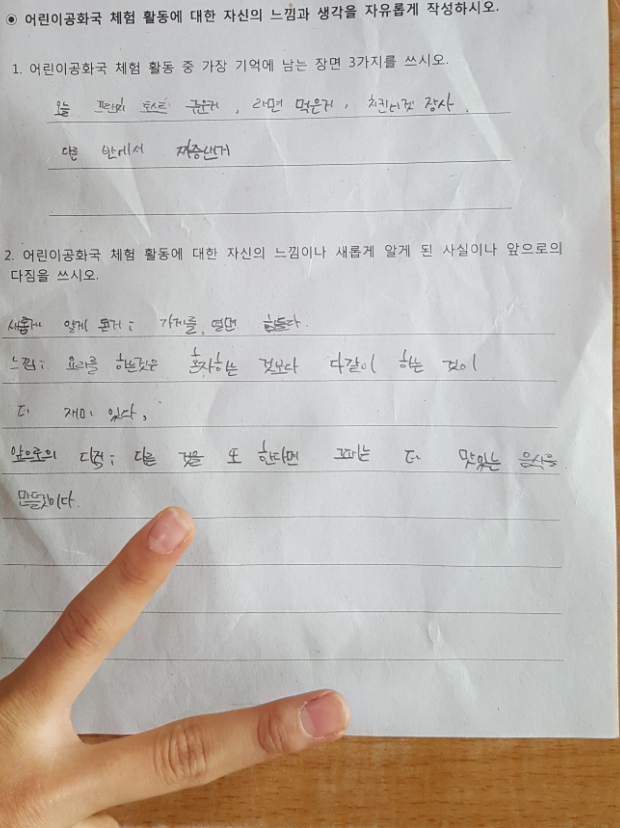 ◉ 어린이공화국 체험 활동에 대한 자신의 느낌과 생각을 자유롭게 작성하시오.
1. 어린이공화국 체험 활동 중 가장 기억에 남는 장면 3가지를 쓰시오.
오늘 토스트 구운거, 라면 먹은거, 장사.
다른 반에서 짜증낸거
2. 어린이공화국 체험 활동에 대한 자신의 느낌이나 새롭게 알게 된 사실이나 앞으로의
다짐을 쓰시오.
새롭게 알게 된거; 가게를 열면 힘들다.
느낌; 요리를 하는것은 혼자하는 것보다 다같이 하는 것이
더 재미 있다,
앞으로의 다짐; 다른 것을 또 한다면 더 맛있는 음식을
만들것이다.